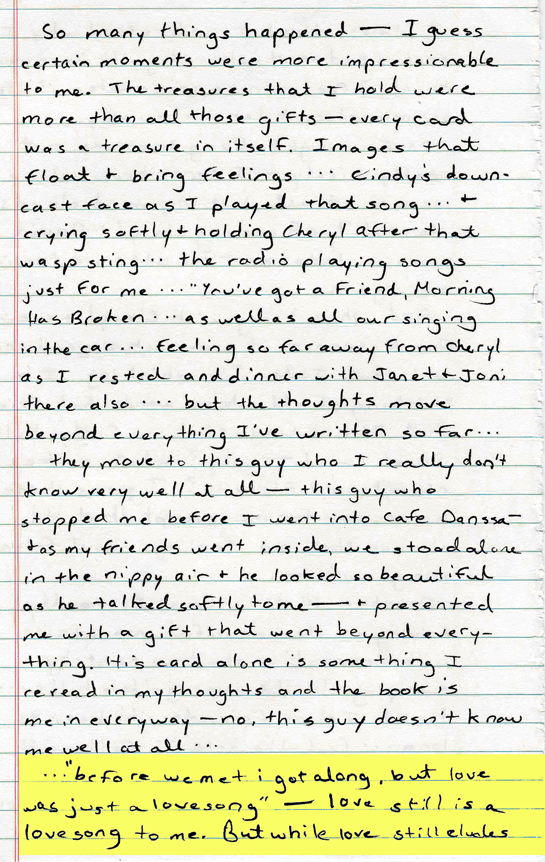 So many things happened — I guess
certain moments were more impressionable
to me. The treasures that I hold were
more than all those gifts — every card
was a treasure in itself. Images that
float + bring feelings ... Cindy's down-
cast face as I played that song... +
crying softly + holding Cheryl after that
wasp sting... the radio playing songs
just for me ... "You've got a Friend, Morning
Has Broken ... as well as all our singing
in the car ... feeling so far away from Cheryl
as I rested and dinner with Janet + Joni
there also ... but the thoughts move
beyond everything I've written so far...
they move to this guy who I really don't
know very well at all — this guy who
stopped me before I went into Cafe Danssa —
+ as my friends went inside, we stood alone
in the nippy air + he looked so beautiful
as he talked softly to me — + presented
me with a gift that went beyond every-
thing. His card alone is something I
reread in my thoughts and the book is
me in everyway — no, this guy doesn't know
me well at all ...
..."before we met i got along, but love
was just a lovesong" — love still is a
lovesong to me. But while love still eludes